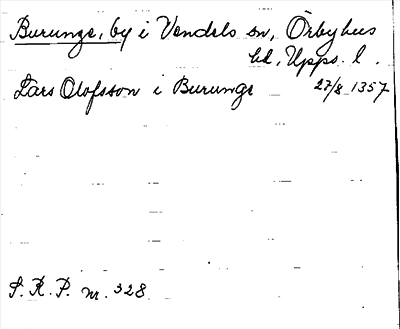 Burunge, by i Vendels sn, Örbyhus
hd, Upps. l.
Lars Olofsson i Burunge 27/8 1357
S. R. P. nr. 328